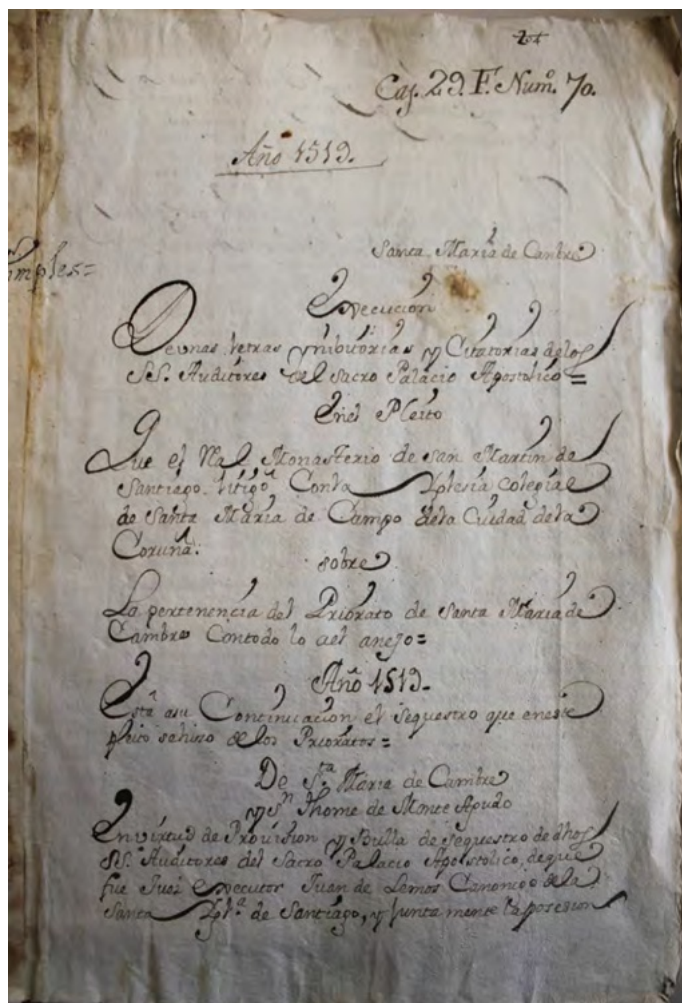 Caj. 29. F. Num.º 70.
Año 1519.
Santa Maria de Cambre
mples=
Execucion
De unas Letras Ynibitorias y Citatorias de los
SS.s Auditores del Sacro Palacio Apostolico =
Enel Pleito
Que el Rl. Monasterio de San Martin de
Santiago litigó Conla Yglesia Colegial
de Santa Maria de Campo dela Ciudad dela
Coruña:
sobre
La pertenencia del Priorato de Santa Maria de
Cambre Contodo lo ael anejo=
Año 1519.
Está asu Continuacion el sequestro que eneste
pleito sehizo de los Prioratos=
De S.ta Maria de Cambre
y S.n Thome de Monte Agudo
En virtud de Provision y Bulla de sequestro de dhos
SS.s Auditores del Sacro Palacio Apostolico, deque
fue Juez executor Juan de Lemos Canonigo dela
Santa Ygl.ª de Santiago, y junta mente la posesion